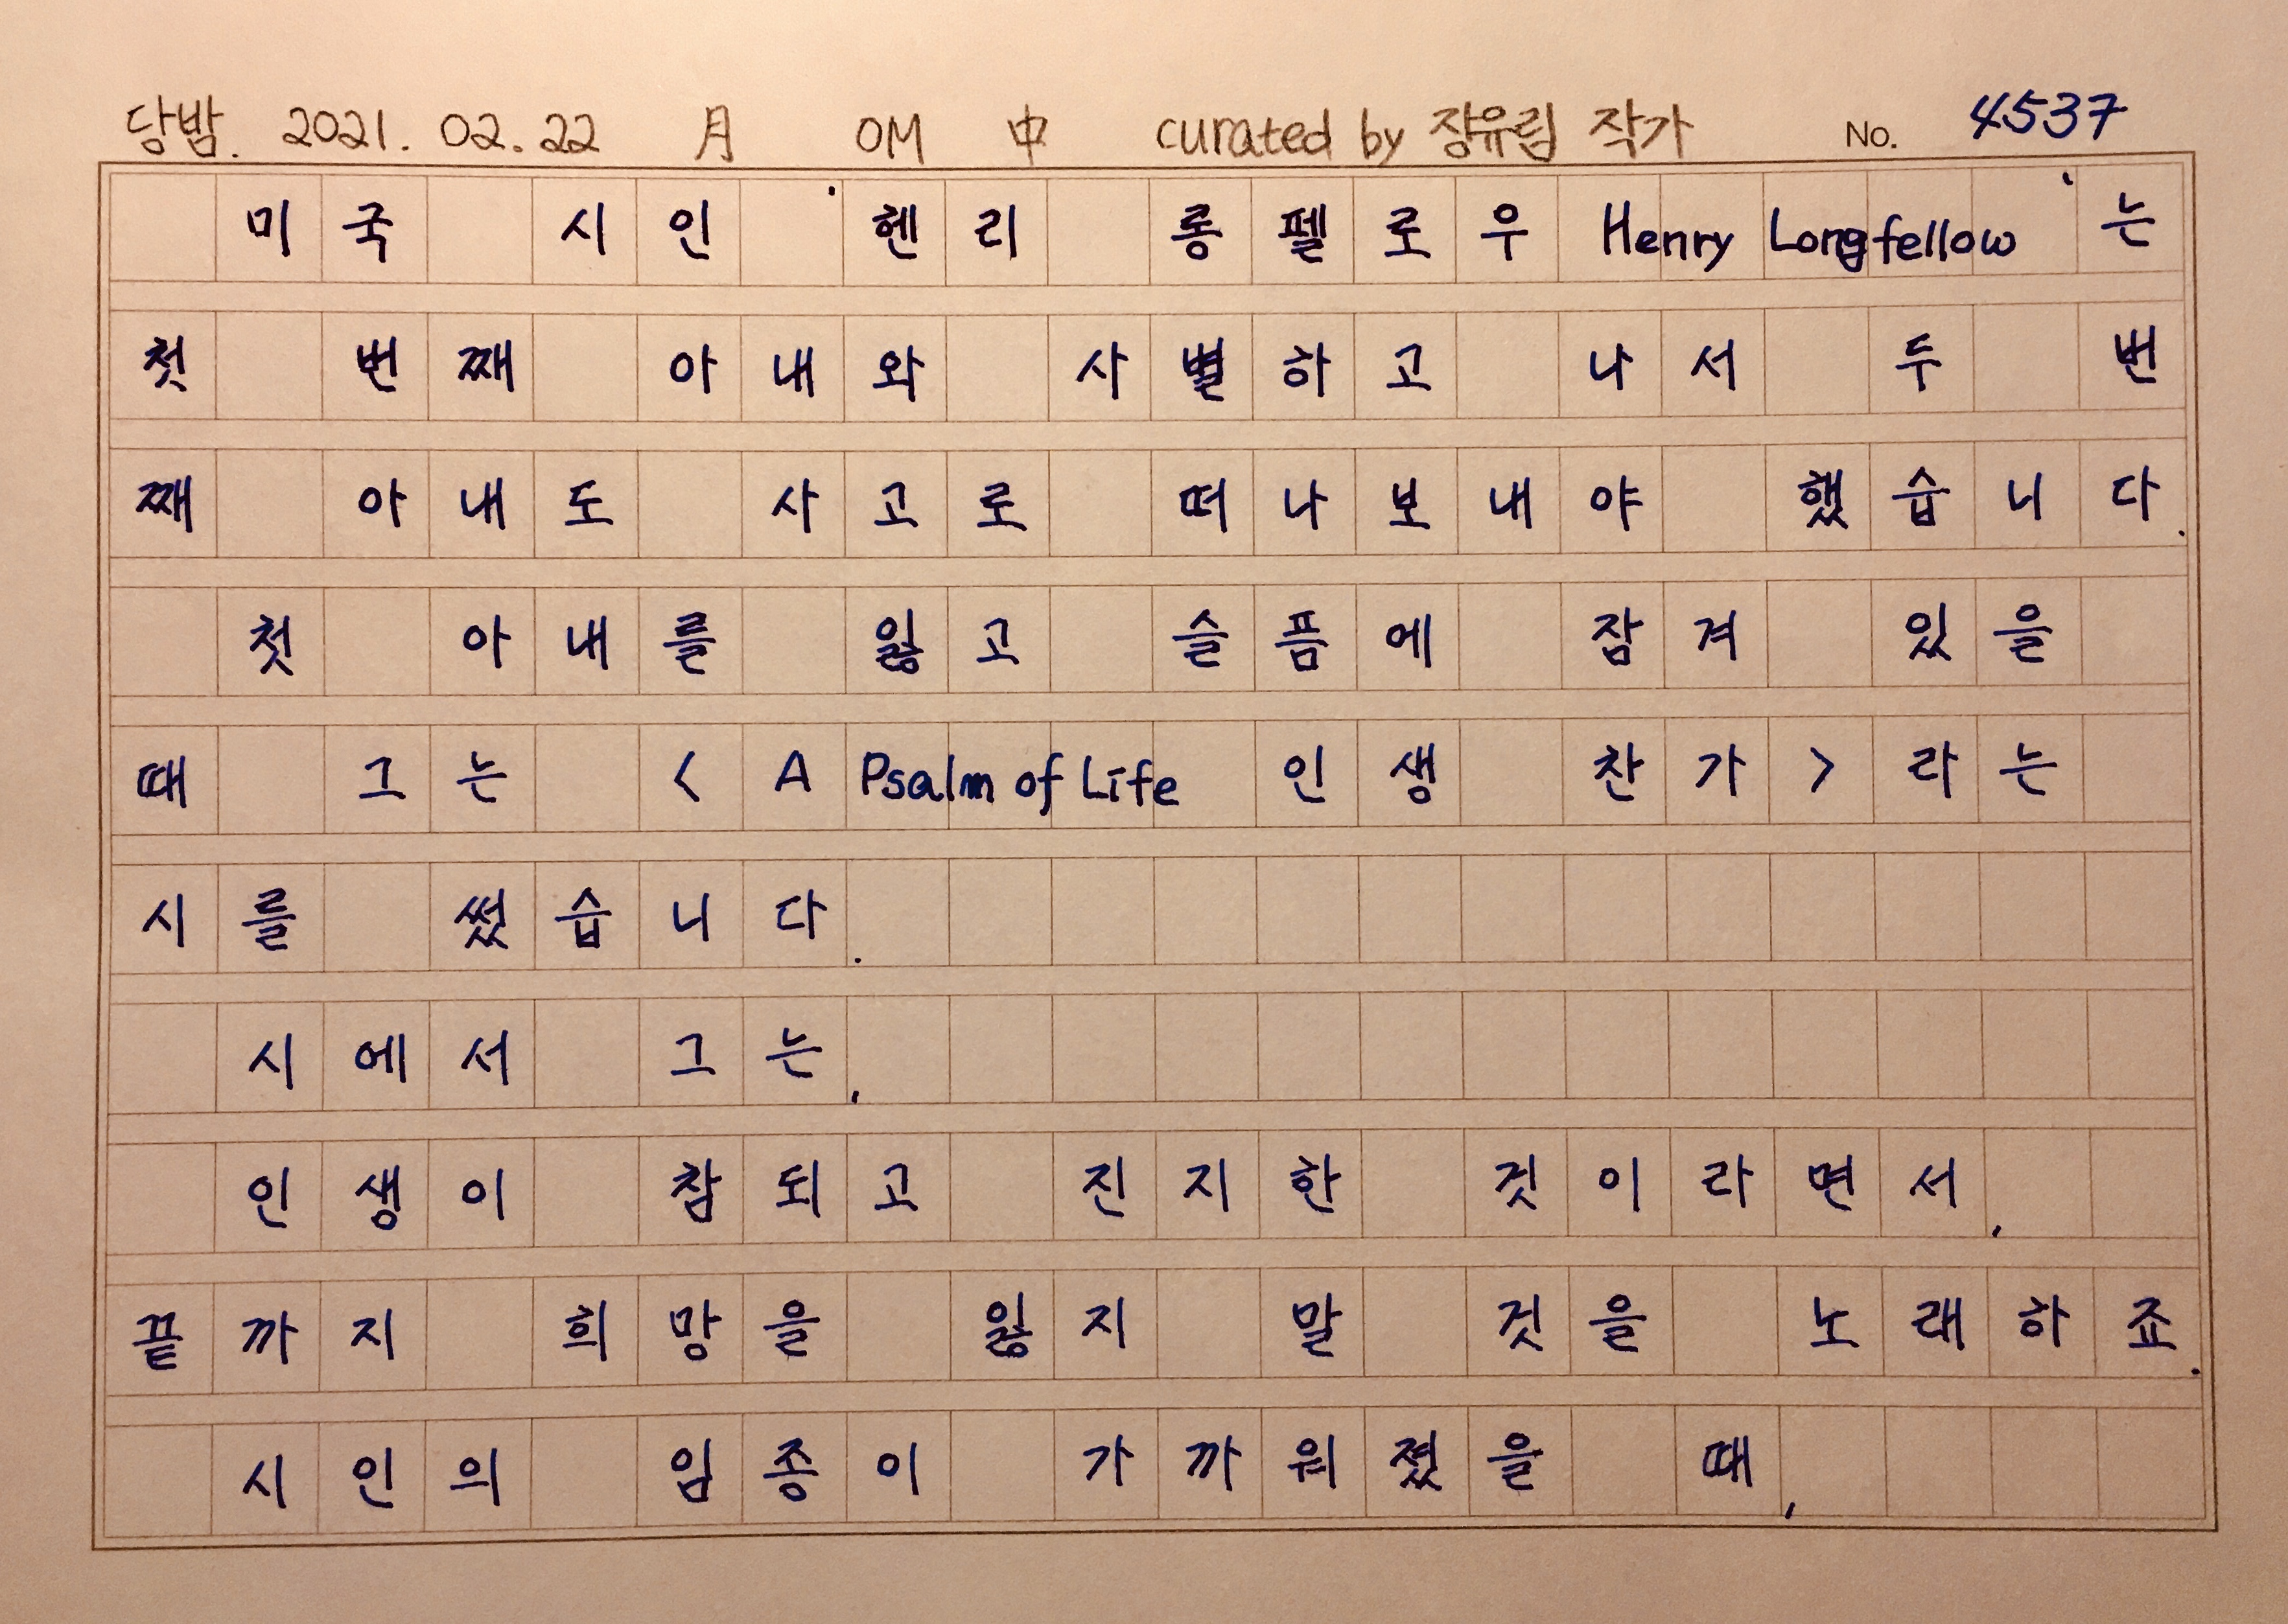 당밤. 2021. 02. 22 月 OM 中 curated by 장유림 작가 No. 4537
미국 시인 '헨리 롱펠로우 Henry Longfellow'는
첫 번째 아내와 사별하고 나서 두 번
째 아내도 사고로 떠나보내야 했습니다.
첫 아내를 잃고 슬픔에 잠겨 있을
때 그는 <A Psalm of Life 인생 찬가>라는
시를 썼습니다.
시에서 그는,
인생이 참되고 진지한 것이라면서,
끝까지 희망을 잃지 말 것을 노래하죠.
시인의 임종이 가까워졌을 때,